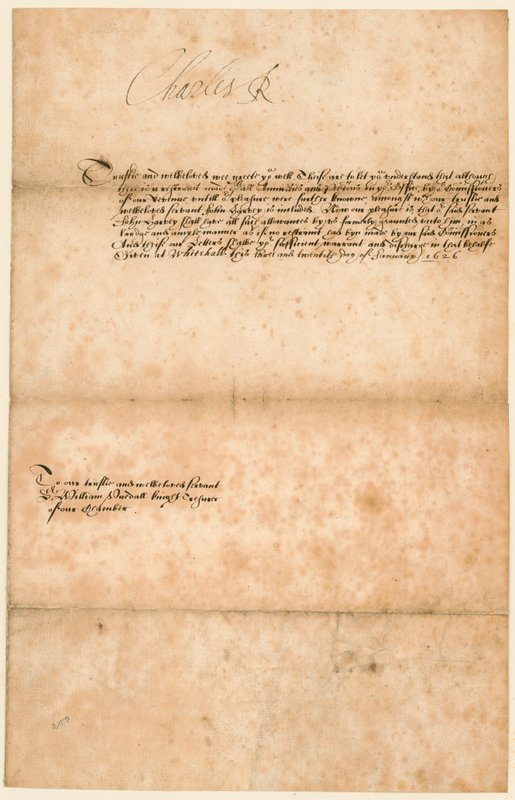 Charles R
Trustie and welbeloved wee greete yoᵘ well. Theise are to let yoᵘ understand that although
there is a restreint made of all Annuities and Pencons in yoʳ Office by oʳ Comissioners
of our Revenue untill oʳ pleasure were further knowne amongst wᶜʰ our trustie and
welbeloved servant John Harvey is included. Now our pleasure is that oʳ said servant
John Harvey shall have all such allowances by us formerly graunted unto him in as
lardge and ample manner as if no restreint had byn made by our said Comissioners
And theise our Letters shalbe yoʳ sufficient warrant and discharge in that behalfe
Given at Whitehall this three and twentith day of January 1626
To our trustie and welbeloved servant
Sʳ William Uvedall knight Tresurer
of our Chamber
200